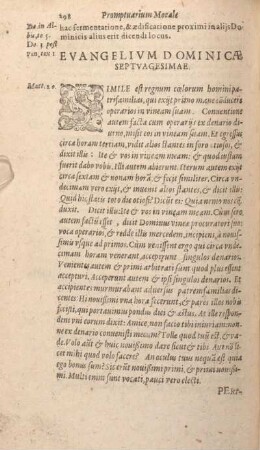 298 Promptuarium Morale
hac fermentatione, & ædificatione proximi in alijs Do-
minicis alius erit dicendi locus.
EVANGELIVM DOMINICÆ
SEPTVAGESIMAE.
Matt. 20.
SIMILE est regnum cœlorum homini pa-
trifamilias, qui exijt primo mane conducere
operarios in vineam suam. Conuentione
autem facta cum operarijs ex denario diur-
no, misit eos in vineam suam. Et egressus
circa horam tertiam, vidit alios stantes in foro otiosos, &
dixit illis: Ite & vos in vineam meam: & quod iustum
fuerit dabo vobis. Illi autem abierunt. Iterum autem exijt
circa sextam & nonam horã: & fecit similiter. Circa vn-
decimam vero exijt, & inuenit alios stantes, & dicit illis:
Quid hic statis tota die otiosi? Dicunt ei: Quia nemo nos con-
duxit. Dicit illis: Ite & vos in vineam meam. Cùm sero
autem factũ esset, dicit Dominus vineæ procuratori suo:
voca operarios, & redde illis mercedem, incipiens, à nouis-
simis vsque ad primos. Cùm venissent ergo qui circa vnde-
cimam horam venerant, acceperunt singulos denarios.
Venientes autem & primi arbitrati sunt quod plus essent
accepturi. Acceperunt autem & ipsi singulos denarios. Et
accipientes murmurabant aduersus patremfamilias dicen-
tes: Hi nouissimi vna horâ fecerunt, & pares illos nobis
fecisti, qui portauimus pondus diei & æstus. At ille respon-
dens vni eorum dixit: Amice, non facio tibi iniuriam: non-
ne ex denario conuenisti mecum? Tolle quod tuũ est, & va-
de. Volo aũt & huic nouissimo dare sicut & tibi. Aut nõ li-
cet mihi quod volo facere? An oculus tuus nequã est quia
ego bonus sum? Sic erũt nouissimi primi, & primi nouis-
simi. Multi enim sunt vocati, pauci vero electi.
PERI-